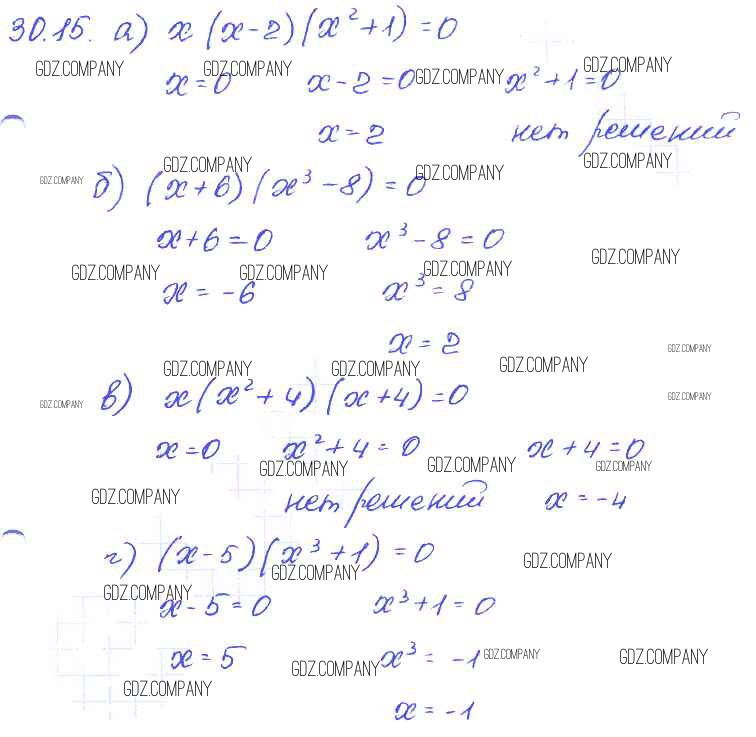 30.15. а) x (x-2)(x²+1)=0
GDZ.COMPANY GDZ.COMPANY GDZ.COMPANY GDZ.COMPANY
x=0 x-2=0 x²+1=0
x=2 нет решений
GDZ.COMPANY GDZ.COMPANY GDZ.COMPANY GDZ.COMPANY
б) (x+6)(x³-8)=0
x+6=0 x³-8=0
GDZ.COMPANY GDZ.COMPANY GDZ.COMPANY GDZ.COMPANY
x=-6 x³=8
x=2
GDZ.COMPANY
GDZ.COMPANY GDZ.COMPANY GDZ.COMPANY
в) x(x²+4)(x+4)=0
GDZ.COMPANY GDZ.COMPANY
x=0 x²+4=0 x+4=0
GDZ.COMPANY GDZ.COMPANY GDZ.COMPANY
GDZ.COMPANY
нет решений x=-4
г) (x-5)(x³+1)=0
GDZ.COMPANY GDZ.COMPANY
GDZ.COMPANY
x-5=0 x³+1=0
x=5 x³=-1
GDZ.COMPANY GDZ.COMPANY GDZ.COMPANY
GDZ.COMPANY
x=-1